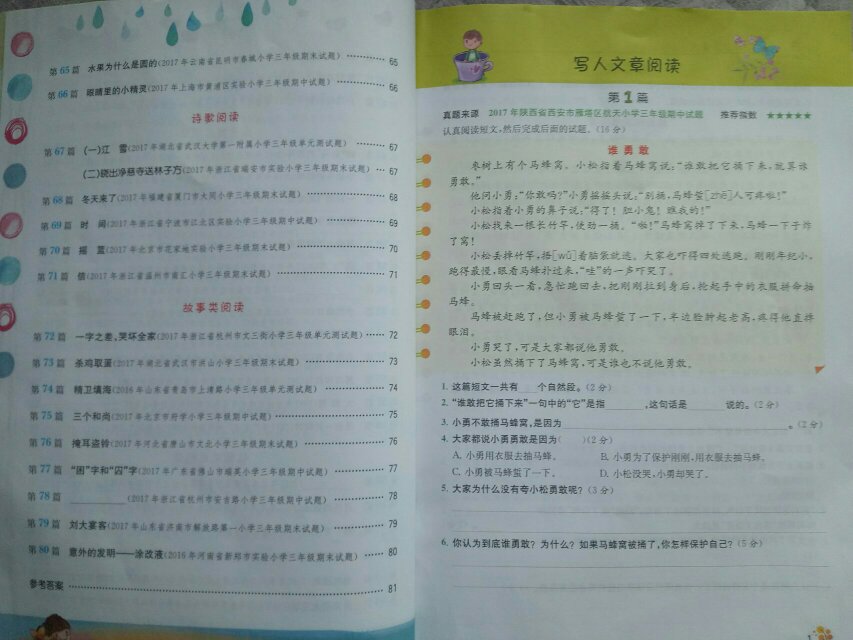 第65篇 水果为什么是圆的(2017年云南省昆明市春城小学三年级期末试题) ………… 65
第66篇 眼睛里的小精灵(2017年上海市黄浦区实验小学三年级期中试题) ………… 66
诗歌阅读
第67篇 (一)江 雪(2017年湖北省武汉大学第一附属小学三年级单元测试) ……… 67
(二)晓出净慈寺送林子方(2017年浙江省瑞安市实验小学三年级期末试题) … 67
第68篇 冬天来了(2017年福建省厦门市大同小学三年级期末试题) ………… 68
第69篇 时 间(2017年浙江省宁波市江北区实验小学三年级期中试题) ………… 69
第70篇 摇 篮(2017年北京市花家地实验小学三年级期末试题) ………… 70
第71篇 信(2017年浙江省温州市南汇小学三年级期末试题) ………… 71
故事类阅读
第72篇 一字之差,哭坏全家(2017年浙江省杭州市文三街小学三年级单元测试) …… 72
第73篇 杀鸡取蛋(2017年湖北省武汉市洪山小学三年级期末试题) ………… 73
第74篇 精卫填海(2016年山东省青岛市上清路小学三年级单元测试) ………… 74
第75篇 三个和尚(2017年北京市府学小学三年级期中试题) ………… 75
第76篇 掩耳盗铃(2017年河北省唐山市文北小学三年级期末试题) ………… 76
第77篇 “困”字和“囚”字(2017年广东省佛山市瑞英小学三年级期中试题) ……… 77
第78篇 ________(2017年浙江省杭州市安吉路小学三年级期中试题) ………… 78
第79篇 刘大宴客(2017年山东省济南市解放路第一小学三年级期末试题) ……… 79
第80篇 意外的发明——涂改液(2016年河南省新郑市实验小学三年级期末试题) …… 80
参考答案 ………… 81
写人文章阅读
第1篇
真题来源 2017年陕西省西安市雁塔区航天小学三年级期中试题 推荐指数 ★★★★★
认真阅读短文,然后完成后面的试题。(16分)
谁勇敢
枣树上有个马蜂窝。小松指着马蜂窝说:“谁敢把它捅下来,就算谁
勇敢。”
他问小勇:“你敢吗?”小勇摇摇头说:“别捅,马蜂蜇[zhē]人可疼啦!”
小松指着小勇的鼻子说:“得了!胆小鬼!瞧我的!”
小松找来一根长竹竿,使劲一捅。“啪!”马蜂窝掉了下来,马蜂一下子炸
了窝!
小松丢掉竹竿,捂[wǔ]着脑袋就逃。大家也吓得四处逃跑。刚刚年纪小,
跑得最慢,眼看马蜂扑过来,“哇”的一声吓哭了。
小勇回头一看,急忙跑回去,把刚刚拉到身后,抡起手中的衣服拼命抽
马蜂。
马蜂被赶跑了,但小勇被马蜂蜇了一下,半边脸肿起老高,疼得他直掉
眼泪。
小勇哭了,可是大家都说他勇敢。
小松虽然捅下了马蜂窝,可是谁也不说他勇敢。
1. 这篇短文一共有____个自然段。(2分)
2. “谁敢把它捅下来”一句中的“它”是指______,这句话是______说的。(2分)
3. 小勇不敢捅马蜂窝,是因为________________________。(2分)
4. 大家都说小勇勇敢是因为( )(2分)
A. 小勇用衣服去抽马蜂。 B. 小勇为了保护刚刚,用衣服去抽马蜂。
C. 小勇被马蜂蜇了一下。 D. 小松没哭,小勇却哭了。
5. 大家为什么没有夸小松勇敢呢?(3分)
6. 你认为到底谁勇敢?为什么?如果马蜂窝被捅了,你怎样保护自己?(5分)
1